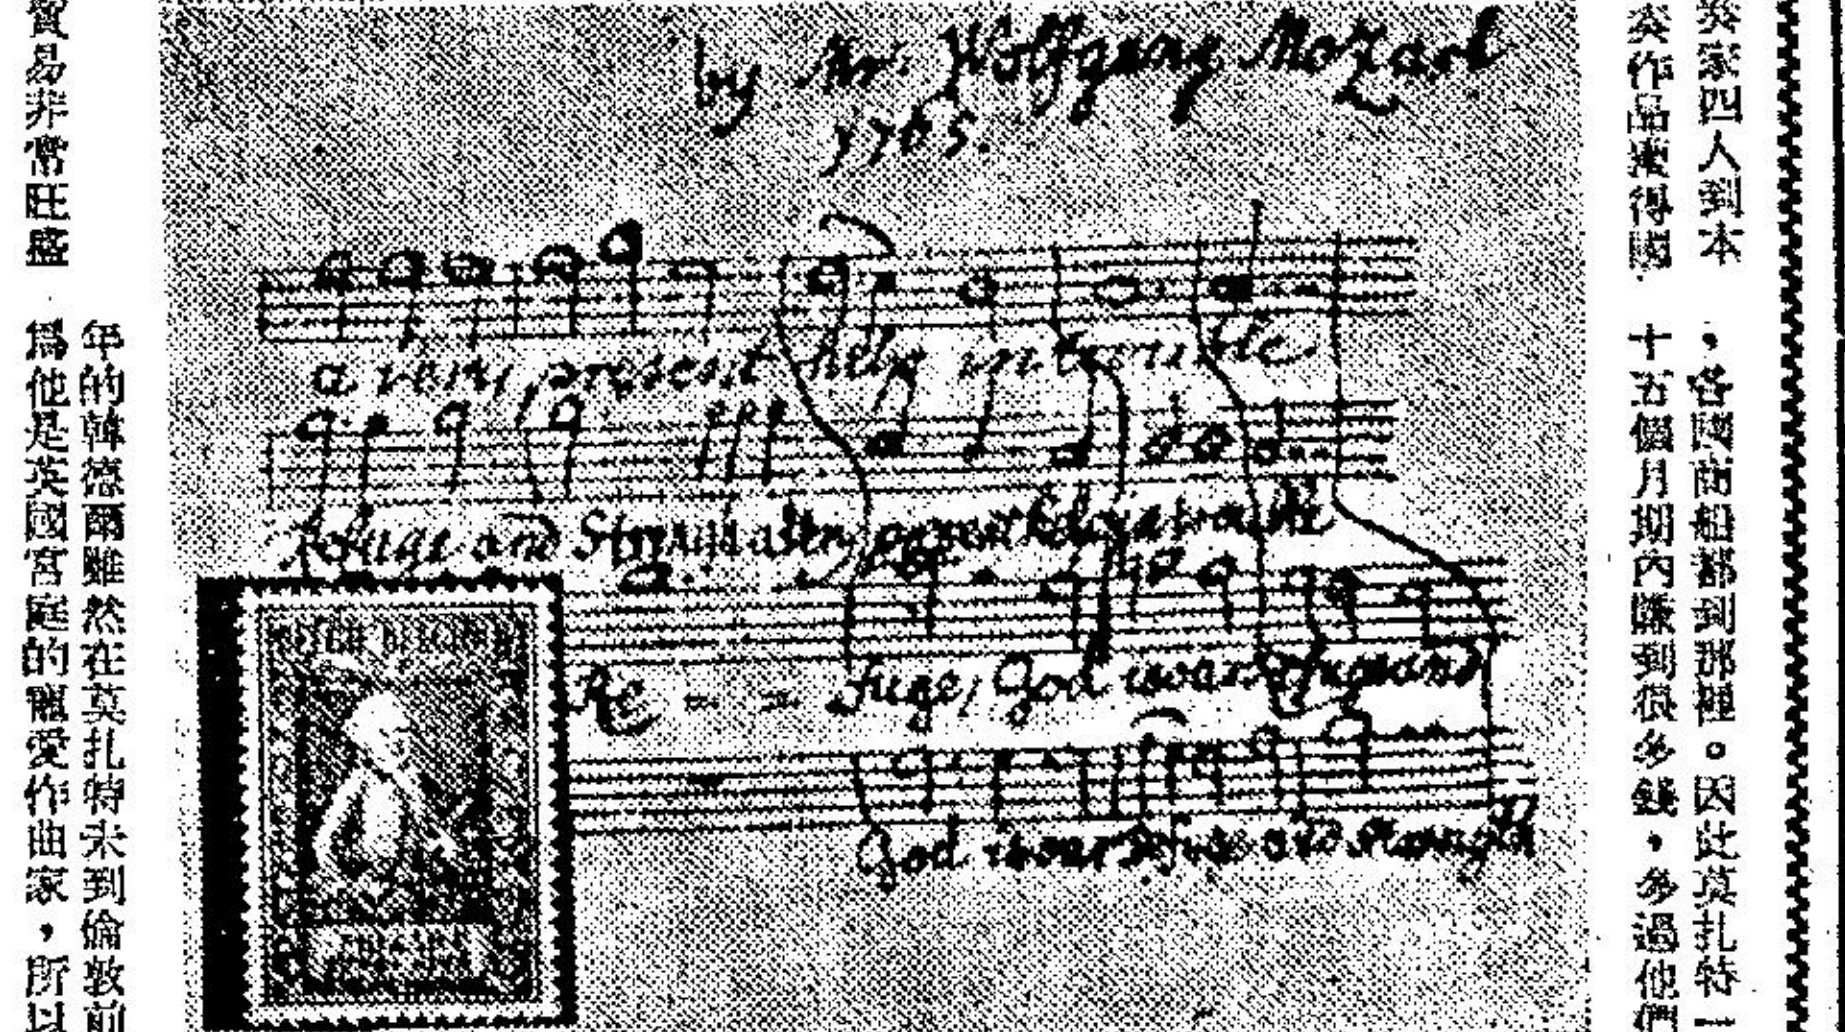 炎家四人到本
，各國商船都到那裡。因此莫扎特一
奏作品獲得國
十五個月期內賺到很多錢，多過他們
by Mr. Wolfgang Mozart
1765.
a very present help in trouble.
Refuge and Strength a very present help in trouble
Re - - fuge, God is our Refuge and
God is our Refuge and strength
年的韓德爾雖然在莫扎特未到倫敦前
貿易非常旺盛
為他是英國宮庭的寵愛作曲家，所以